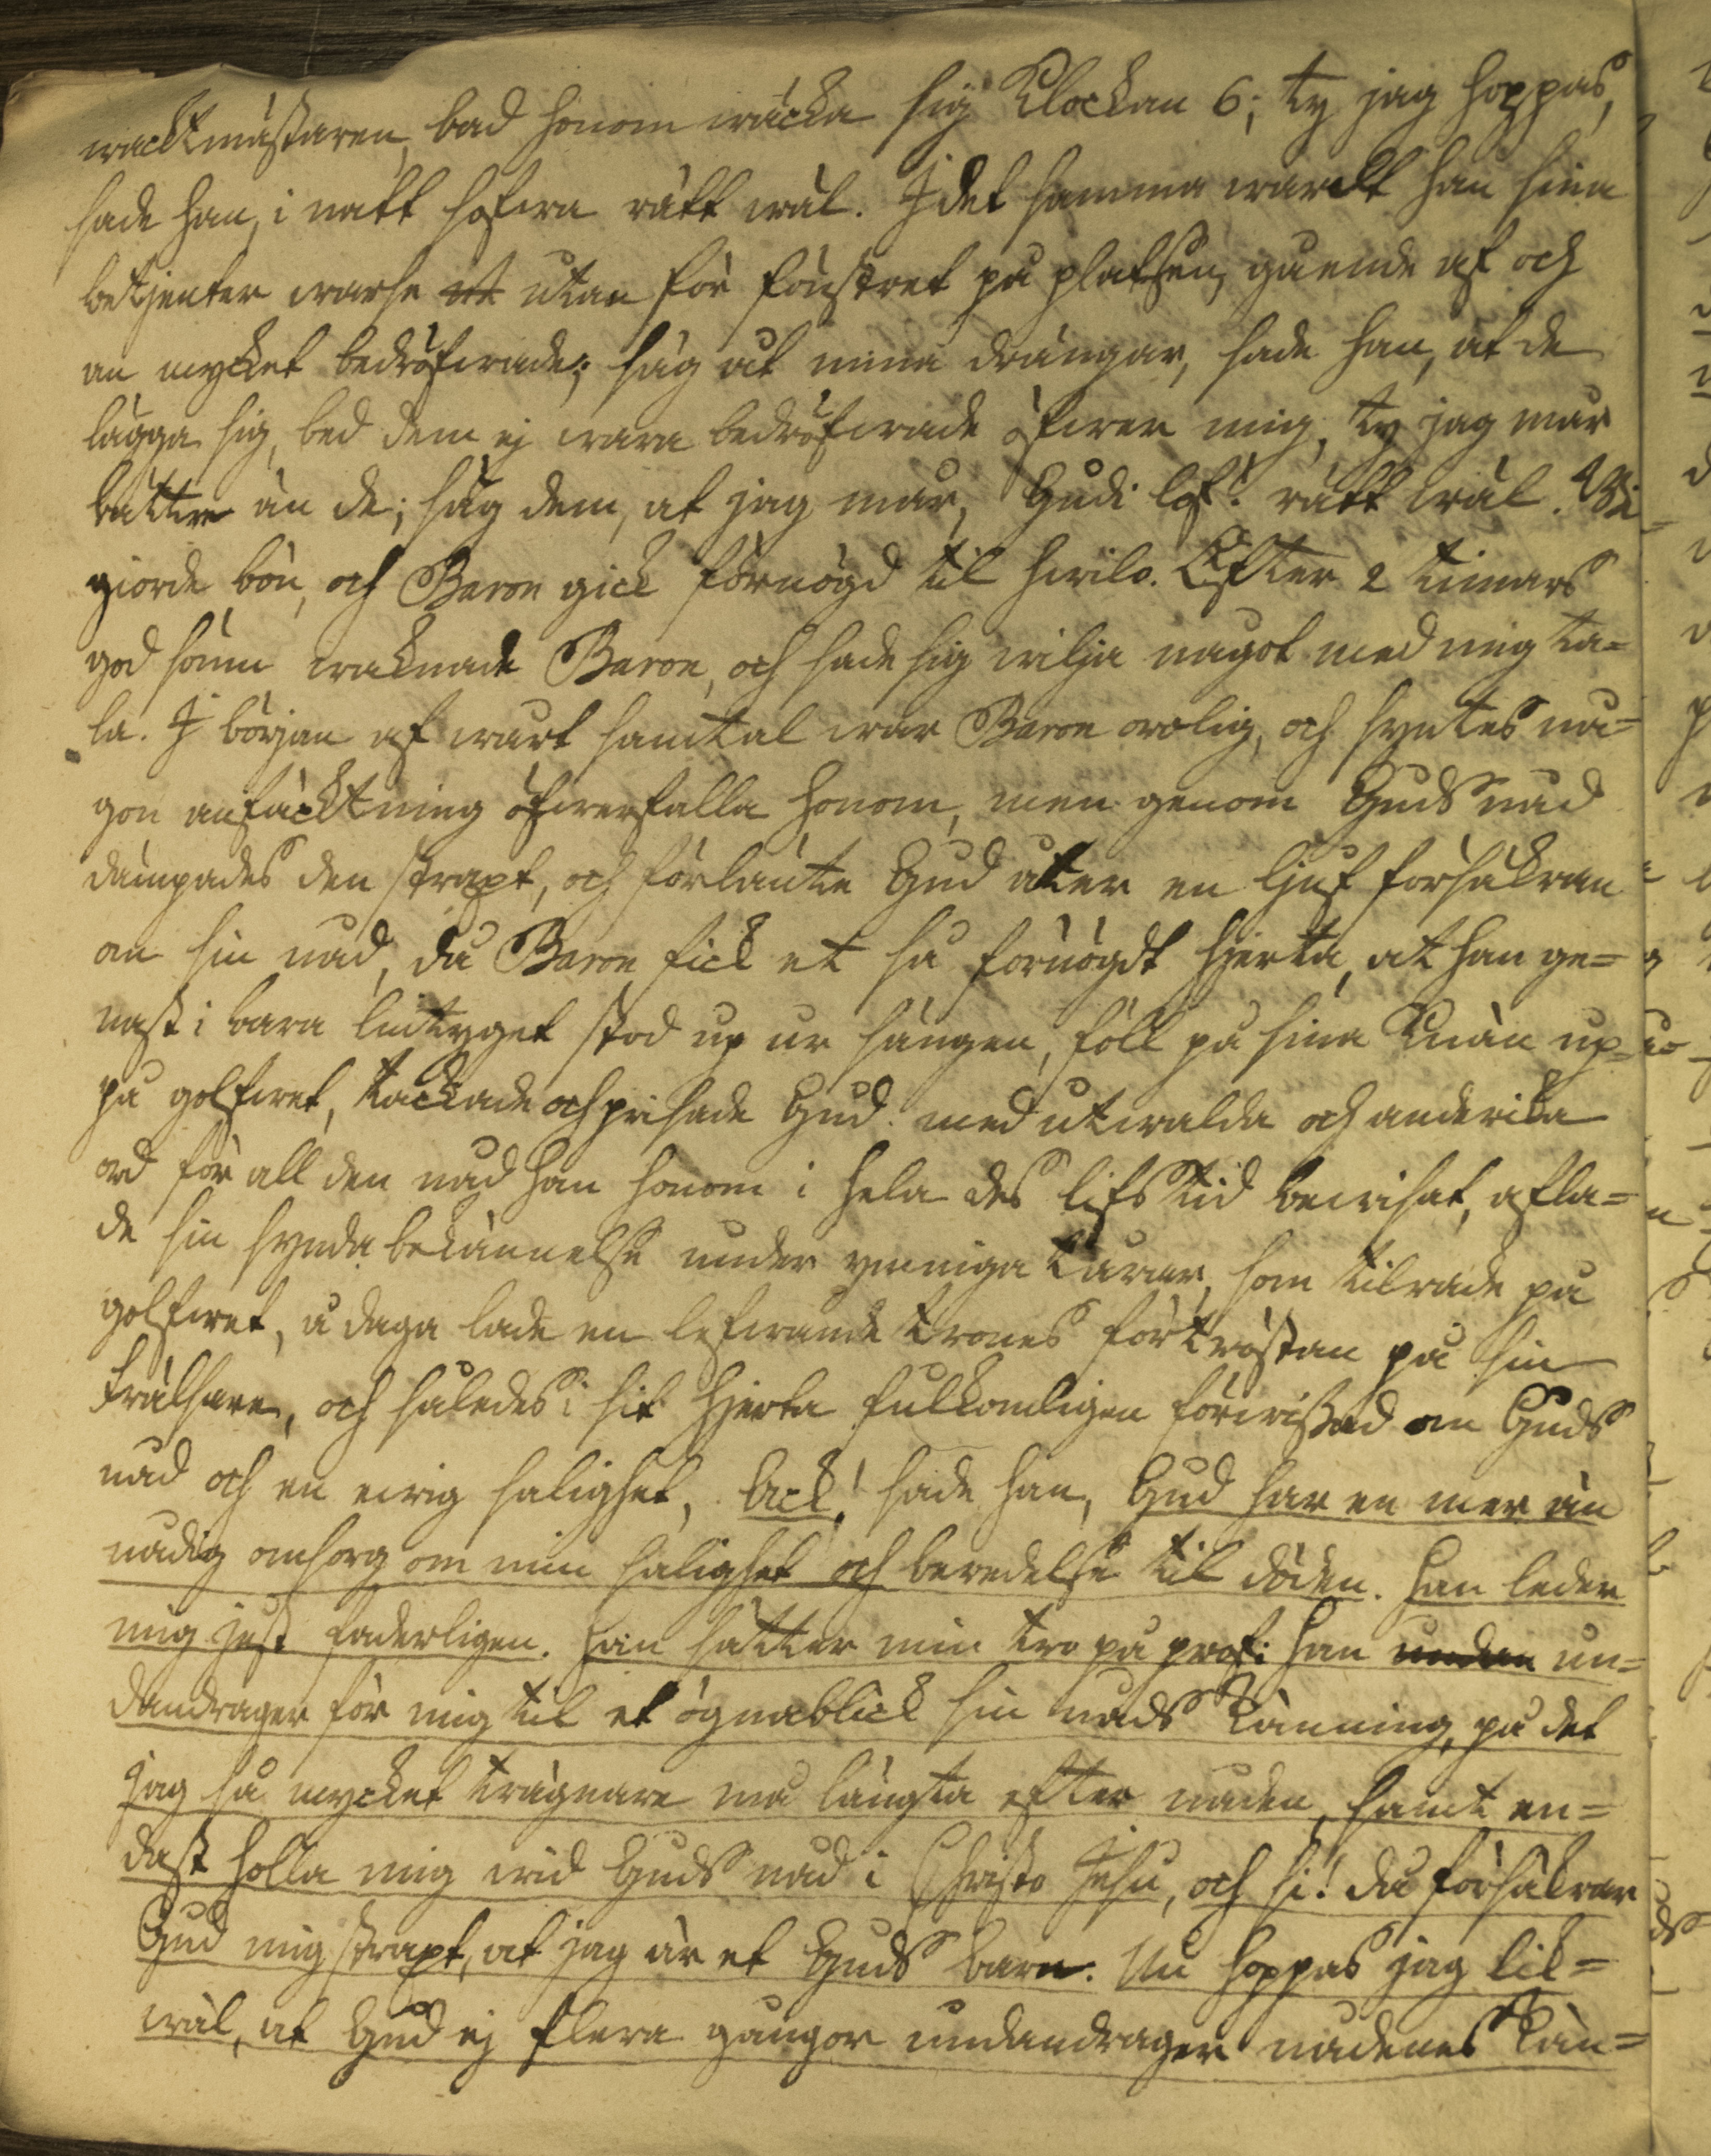 wacktmästaren, bad honom wäcka sig Klockan 6; ty jag hoppas,
sade han, i natt sofwa rätt wäl. I det samma wardt han sina
betjenter warse utan för fönstret på platsen, gående af och
an mycket bedröfwade; säg åt mina drängar, sade han, at de
lägga sig, bed dem ej wara bedröfwade öfwer mig, ty jag mår
bättre än de; säg dem, at jag mår, Gudi lof! rätt wäl. Wi
giorde bön, och Baron gick förnögd til hwila. Efter 2 timars
god sömn waknade Baron, och sade sig wilja något med mig ta=
la. I början af wårt samtal war Baron orolig, och syntes nå=
gon anfäcktning öfwerfalla honom, men genom Guds nåd
dämpades den straxt, och förlänte Gud åter en ljuf försäkran
om sin nåd, då Baron fick et så förnögdt hjerta, at han ge=
nast i bara lintyget stod up ur sängen, föll på sina Knän up=
på golfwet, tackade och prisade Gud med utwalda och anderika
ord för all den nåd han honom i hela des lifstid bewisat, afla=
de sin synda bekännelse under ymniga tårar, som tilrade på
golfwet, å daga lade en lefwande trones förtröstan på sin
Frälsare, och således i sit hjerta fulkomligen förwissad om Guds
nåd och en ewig salighet, Ack! sade han, Gud har en mer än
nådig omsorg om min salighet och beredelse til döden. Han leder
mig just faderligen. Han sätter min tro på prof: Han undan un=
dandrager för mig til et ögnablick sin nåds känning, på det
jag så mycket trägnare må längta efter nåden, samt en=
dast hålla mig wid Guds nåd i Christo Jesu, och si! då försäkrar
Gud mig straxt, at jag är et Guds barn. Nu hoppas jag lik=
wäl, at Gud ej flera gångor undandrager nådenes kän=